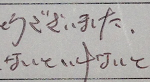 うございました。
ないといけないと